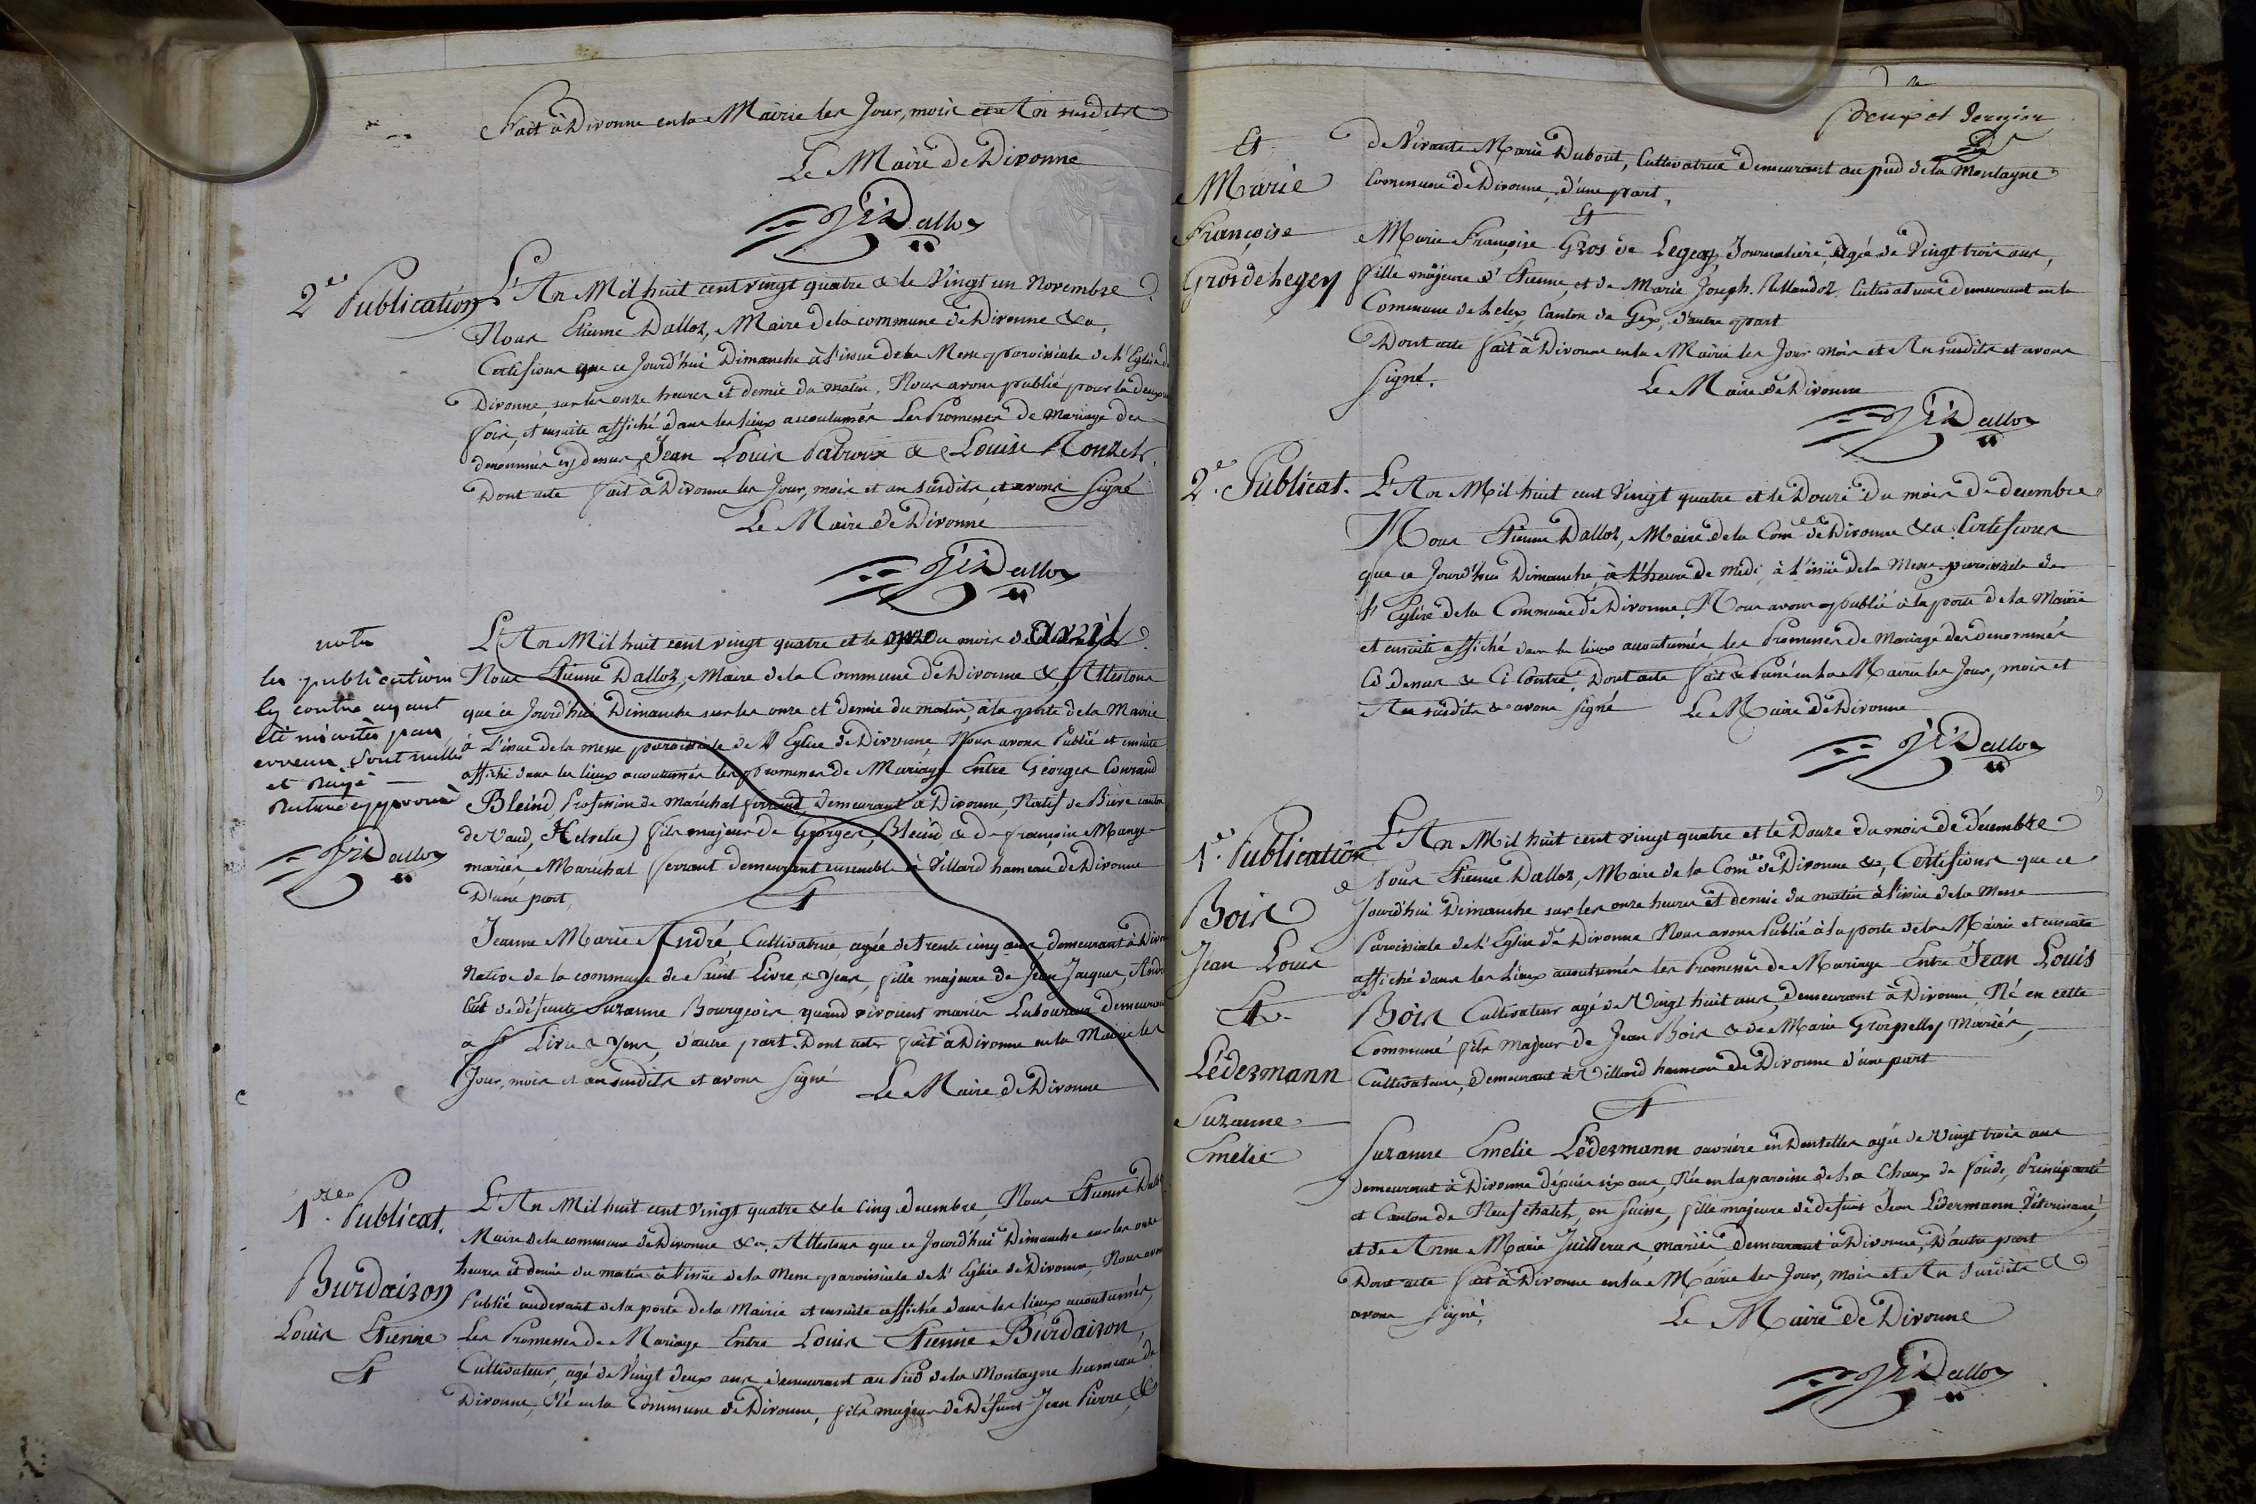 Fait à Divonne en la Mairie les Jour, mois et an susdits
Le Maire de Divonne
Dalloz
2e Publication
L'An Mil huit cent vingt quatre & le Vingt un Novembre
Nous Etienne Dalloz, Maire de la commune de Divonne &a,
Certifions que ce Jourd'hui Dimanche à l'issue de la Messe paroissiale de l'Eglise de
Divonne, sur les onze heures et demie du matin, Nous avons publié pour la deuxième
fois, et ensuite affiché dans les lieux accoutumés Les Promesses de Mariage des
denommés cy dessus, Jean Louis & Louise
Dont acte fait à Divonne les Jour, mois et an susdits, et avons Signé
Le Maire de Divonne
Dalloz
nota
les publications
cy contre ayant
été inscrites par
erreur sont nulles
et
rature approuvé
Dalloz
L'An Mil huit cent vingt quatre et le onze du mois d'avril
Nous Etienne Dalloz, Maire de la Commune de Divonne &, Attestons
que ce Jourd'hui Dimanche sur les onze et demie du matin, à la porte de la Mairie
à l'issue de la messe paroissiale de l'Eglise de Divonne, Nous avons Publié et ensuite
affiché dans les lieux accoutumés les promesses de Mariage Entre Georges Conraud
Bleind, Profession de Maréchal ferrand, demeurant à Divonne, Natif de Bière canton
de Vaud, Helvetie) fils majeur de Georges Bleind & de françoise Mange
mariés, Maréchal ferrant demeurant ensemble à Villard hameau de Divonne
D'une part,
Et
Jeanne Marie André, Cultivatrice, agée de trente cinq ans, demeurant à Divonne
Native de la commune de Saint Livre, fille majeure de Jean Jacques André
et de défunte Suzanne Bourgeois quand vivoient mariés Laboureur demeurant
à St Livre, d'autre part. Dont acte fait à Divonne en la Mairie les
Jour, mois et an susdits et avons Signé
Le Maire de Divonne
1re Publicat.
Burdairon
Louis Etienne
Et
L'An Mil huit cent vingt quatre & le cinq decembre, Nous Etienne Dalloz
Maire de la commune de Divonne &a. Attestons que ce Jourd'hui Dimanche sur les onze
heures et demie du matin à l'issüe de la Messe paroissiale de l'Eglise de Divonne, Nous avons
Publié au devant de la porte de la Mairie et ensuite affiché dans les lieux accoutumés,
Les Promesses de Mariage Entre Louis Etienne Burdairon,
Cultivateur, agé de Vingt deux ans demeurant au Pied de la Montagne hameau de
Divonne, Né en la Commune de Divonne, fils majeur de Défunt Jean Pierre, &
Deux et dernier
Et
Marie
Françoise
Gros de Legex
de Vivante Marie Dubout, Cultivatrice demeurant au pied de la Montagne
Commune de Divonne, d'une part,
Et
Marie Françoise Gros de Legex Journalière, Agée de Vingt trois ans,
fille majeure d'Etienne, et de Marie Joseph. Cultivateurs demeurant en la
Commune de Lelex, Canton de Gex, d'autre part
Dont acte fait à Divonne en la Mairie les Jour mois et An susdits et avons
Signé.
Le Maire de Divonne
Dalloz
2e. Publicat.
L'An Mil huit cent Vingt quatre et le Douze du mois de decembre
Nous Etienne Dalloz, Maire de la Comne de Divonne &a. Certifions
que ce Jourd'hui Dimanche, à l'heure de midi, à l'issüe de la Messe paroissiale de
l'Eglise de la Commune de Divonne, Nous avons publié à la porte de la Mairie
et ensuite affiché dans les lieux accoutumés, les Promesses de Mariage des denommés
Ci Dessus & Ci Contre. Dont acte fait & Passé en la Mairie les Jour, mois et
An susdits & avons signé
Le Maire de Divonne
Dalloz
1e. Publication
Bois
Jean Louis
Et
Lédermann
Suzanne
Emélie
L'An Mil huit cent vingt quatre et le Douze du mois de décembre
Nous Etienne Dalloz, Maire de la Comne de Divonne &a, Certifions que ce
Jourd'hui Dimanche sur les onze heures et demie du matin à l'issüe de la Messe
Paroissiale de l'Eglise de Divonne Nous avons Publié à la porte de la Mairie et ensuite
affiché dans les Lieux accoutumés les Promesses de Mariage Entre Jean Louis
Bois Cultivateur agé de Vingt huit ans, demeurant à Divonne, Né en cette
Commune fils Majeur de Jean Bois & de Marie Grospelly Mariés,
Cultivateurs, demeurant à Villard hameau de Divonne d'une part
Et
Suzanne Emelie Lédermann ouvrière en Dentelles agée de Vingt trois ans
demeurant à Divonne dépuis six ans, Née en la paroisse de La Chaux de fonds, Principauté
et Canton de Neufchatel, en Suisse, fille majeure de defunt Jean Lédermann Véterinaire,
et de Anne Marie Juillerat, mariés demeurant à Divonne, D'autre part
Dont acte fait à Divonne en la Mairie les Jour, Mois et An susdits &
avons signé,
Le Maire de Divonne
Dalloz